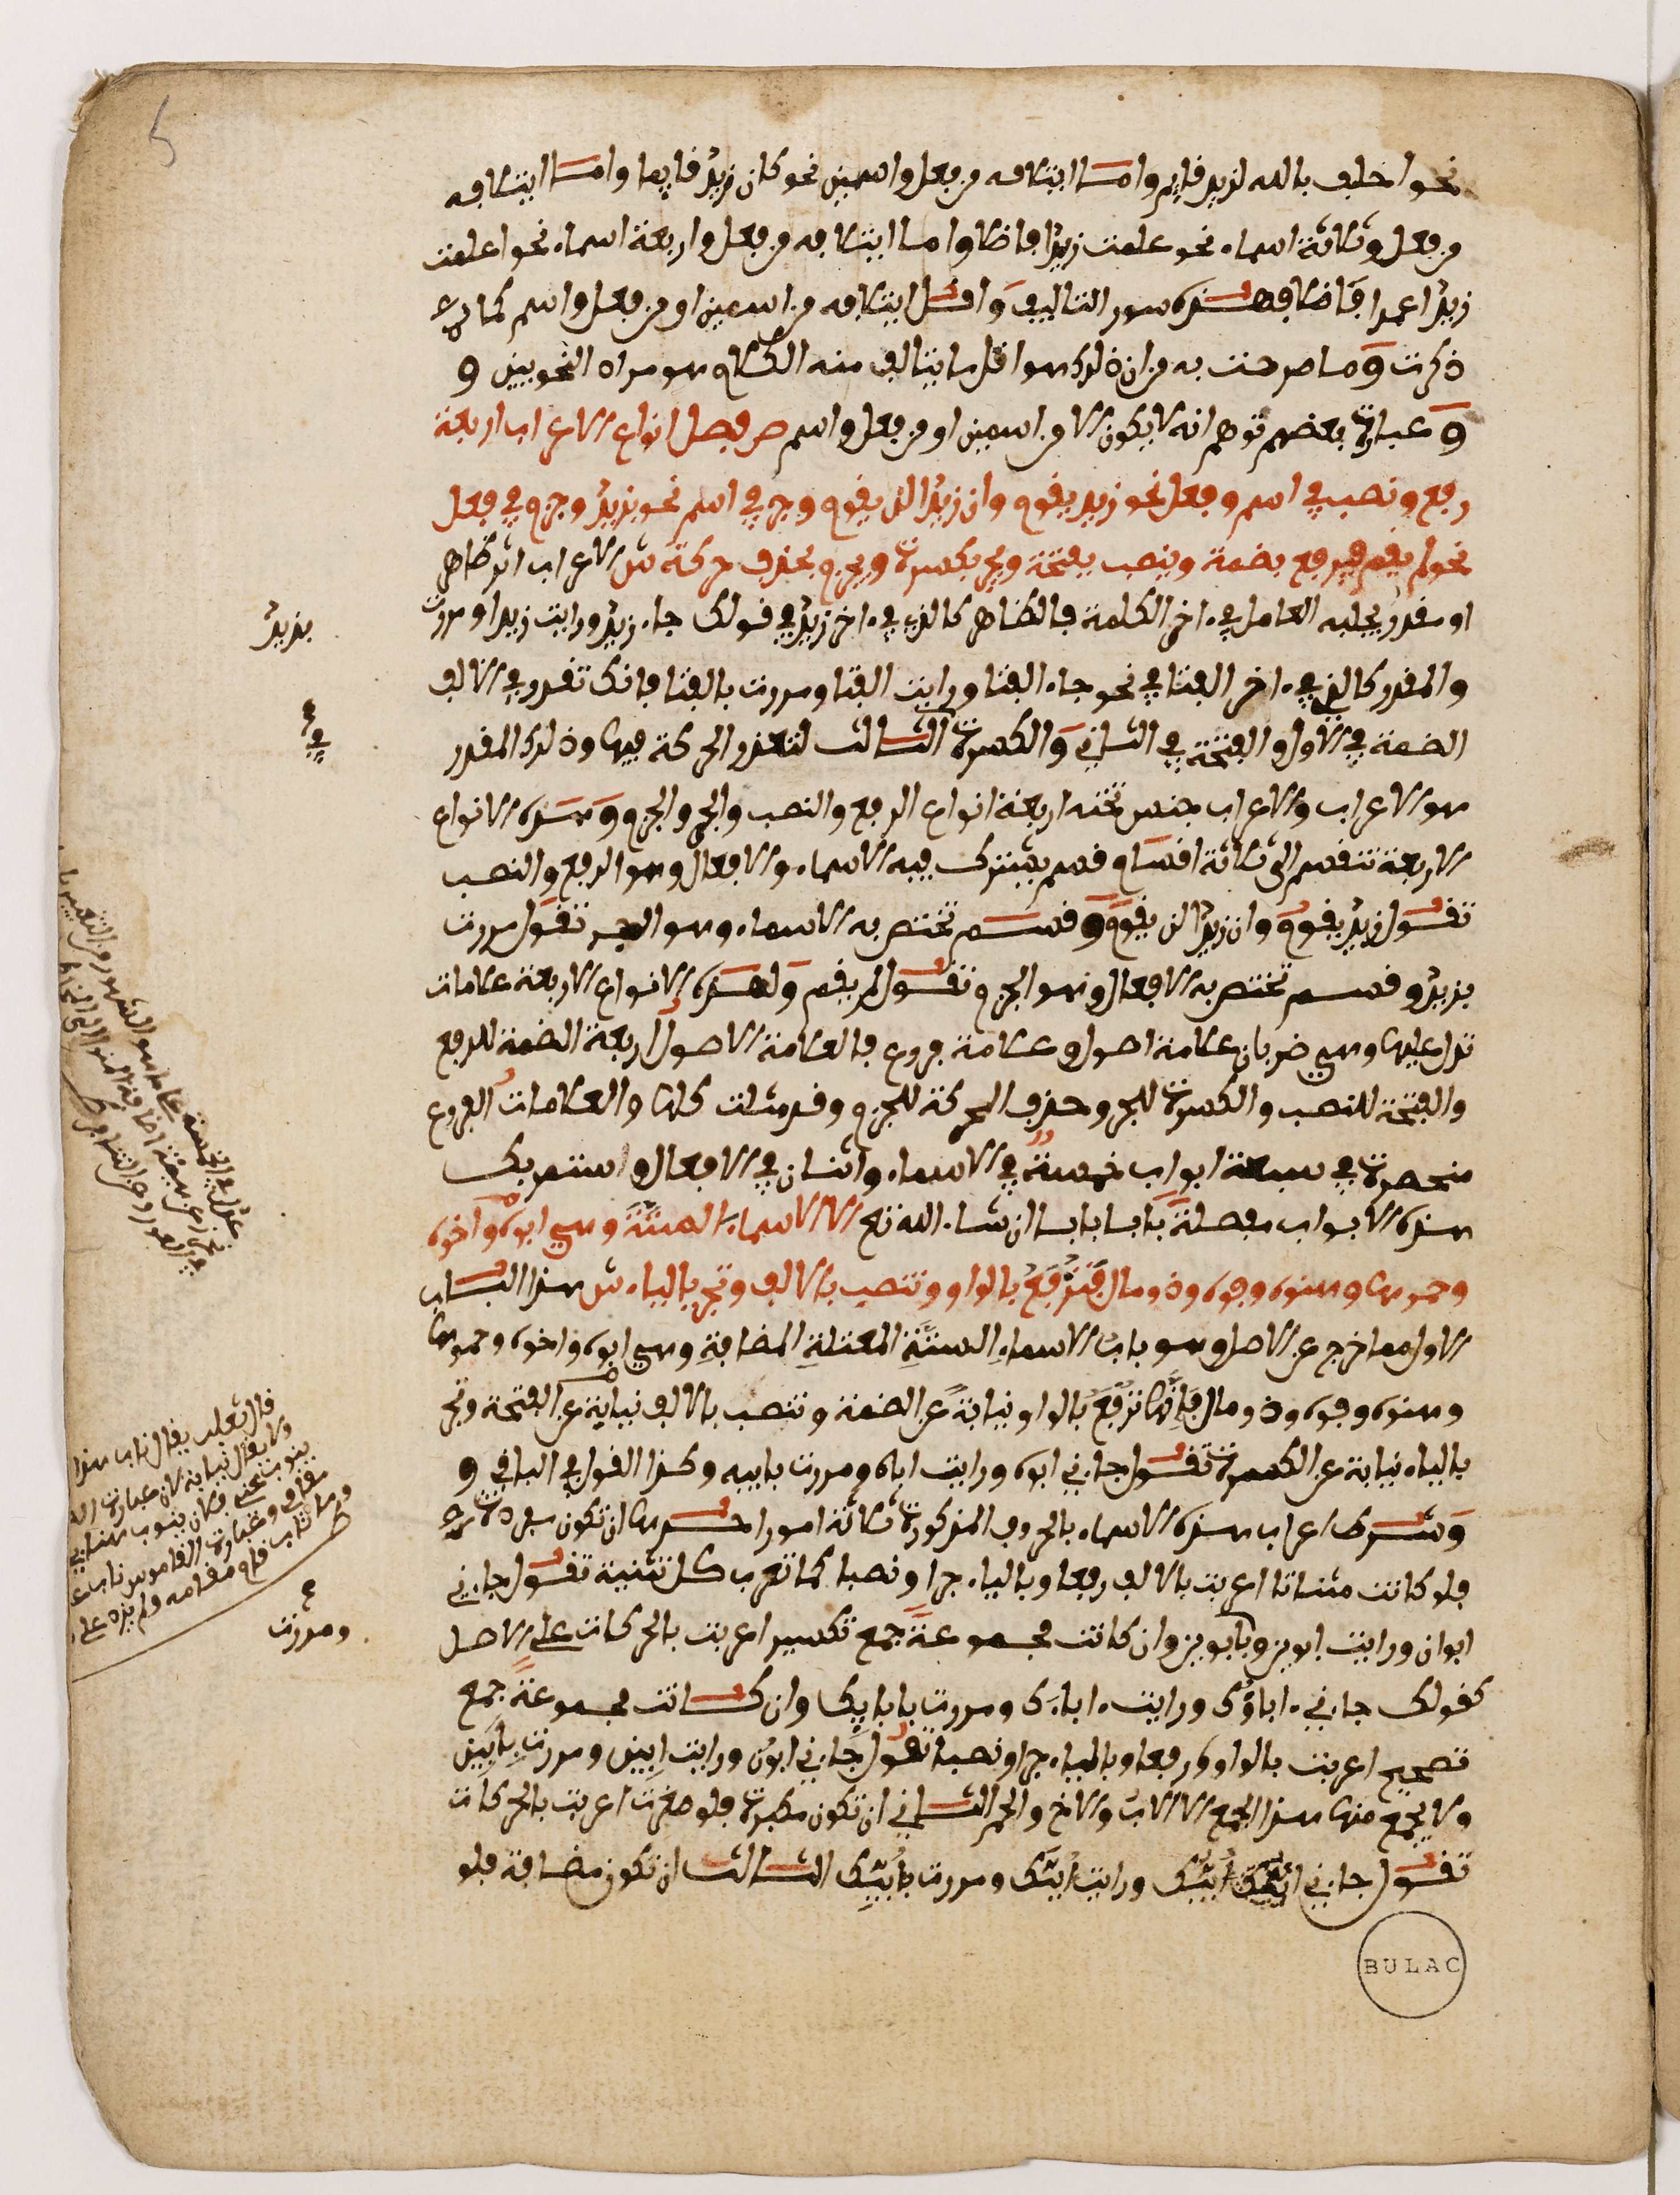 نحو احلف بالله لزيد قايم واما ايتلافه من فعل واسمين نحو كان زيد قايما واما ايتلافه
من فعل وثلاثة اسماء نحو علمت زيدا فاضلا واما ايتلافه من فعل واربعة اسماء نحو اعلمت
زيدا عمرا فاضلا فهذه صور التاليف واقل ايتلافه من اسمين او من فعل واسم كما
ذكرت وما صرحت به من ان ذلك هو اقل ما يتالف منه الكلام هو مراد النحويين و
وعبارة بعضهم توهم انه لا يكون الا من اسمين او من فعل واسم ص فصل انواع الاعراب اربعة
رفع ونصب في اسم وفعل نحو زيد يقوم وان زيدا لن يقوم وجر في اسم نحو بزيد وجزم في فعل
نحو لم يقم فيرفع بضمة وينصب بفتحة ويجر بكسرة ويجزم بحذف حركة ش الاعراب اثر ظاهر
او مقدر يجلبه العامل في ءاخر الكلمة فالظاهر كالذي في ءاخر زيد في قولك جاء زيد ورايت زيدا ومررت
بزيد
والمقدر كالذي في ءاخر الفتا في نحو جاء الفتا ورايت الفتا ومررت بالفتا فانك تقدر في الالف
الضمة في الاول والفتحة في الثاني والكسرة الثالث لتعذر الحركة فيها وذلك المقدر
في
هو الاعراب والاعراب جنس تحته اربعة انواع الرفع والنصب والجر والجزم وهذه الانواع
الاربعة تنقسم الى ثلاثة اقسام قسم يشترك فيه الاسماء والافعال وهو الرفع والنصب
تقول زيد يقوم وان زيدا لن يقوم وقسم تختص به الاسماء وهو الجر تقول مررت
بزيد وقسم تختص به الافعال وهو الجزم تقول لم يقم ولهذه الانواع الاربعة علامات
تدل عليها وهي ضربان علامة اصول وعلامة فروع فالعلامة الاصول اربعة الضمة للرفع
والفتحة للنصب والكسرة للجر وحذف الحركة للجزم وقد مثلت كلها والعلامات الفروع
منحصرة في سبعة ابواب خمسة في الاسماء واثنان في الافعال وستمر بك
هذه الابواب مفصلة بابا بابا ان شاء الله تع ص الا الاسماء الستة وهي ابوه واخوه
وحموها وهنوه وفوه وذو مال فترفع بالواو وتنصب بالالف وتجر بالياء ش هذا الباب
الاول مما خرج عن الاصل وهو باب الاسماء الستة المعتلة المضافة وهي ابوه واخوه وحموها
وهنوه وفوه وذو مال فانها ترفع بالواو نيابة عن الضمة وتنصب بالالف نيابة عن الفتحة وتجر
بالياء نيابة عن الكسرة تقول جاءني ابوه ورايت اباه ومررت بابيه وكذا القول في الباقي و
وشرط اعراب هذه الاسماء بالحروف المذكورة ثلاثة امور احدها ان تكون مفردة
فلو كانت مثناتا اعربت بالالف رفعا وبالياء جرا ونصبا كما تعرب كل تثنية تقول جاءني
ابوان ورايت ابوين وبابوين وان كانت مجموعة جمع تكسير اعربت بالحركات على الاصل
ومررت
كقولك جاءني ءاباؤك ورايت ءاباءك ومررت بابايك وان كانت مجموعة جمع
تصحيح اعربت بالواو رفعا وبالياء جرا ونصبا تقول جاءني ابون ورايت ابين ومررت بابين
ولا يجمع منها هذا الجمع الا الاب والاخ والحم الثاني ان تكون مكبرة فلو صغرت اعربت بالحركات
تقول جاءني ابيك ورايت ابيك ومررت بابيك الثالث ان تكون مضافة فلو
قال ثعلب يقال ناب هذا
ولا يقال نيابة لان
BULAC